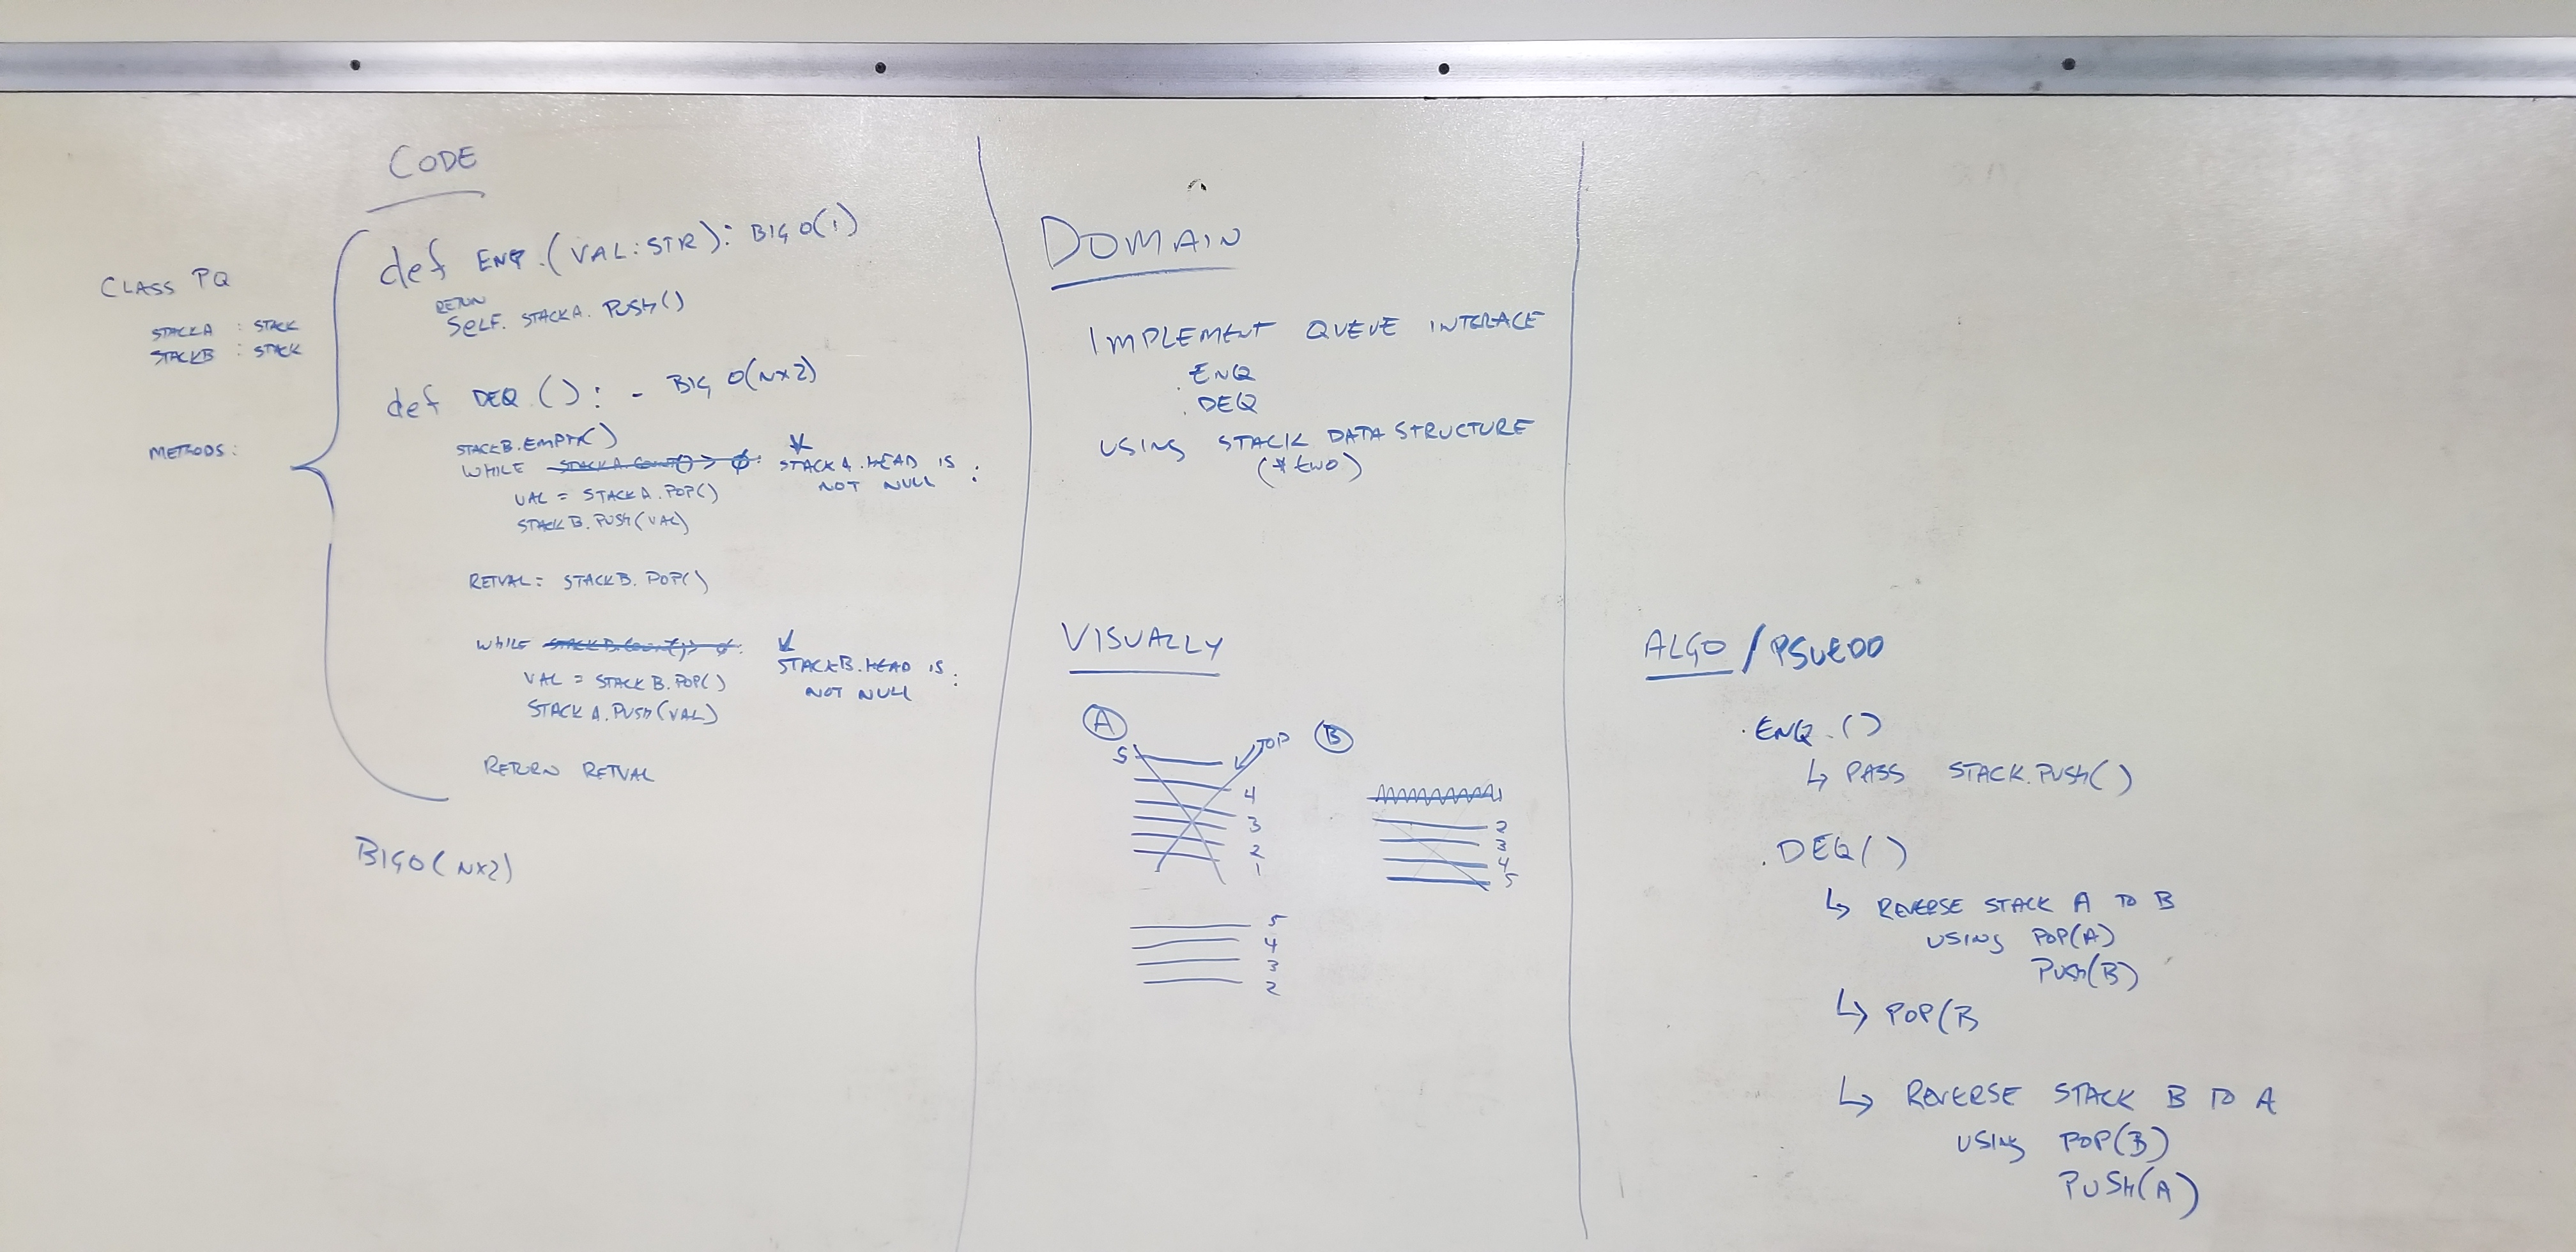 CODE
CLASS PQ
STACKA : STACK
STACKB : STACK
METHODS:
def ENQ.(VAL:STR): BIG O(1)
RETUN
SELF. STACKA. PUSH()
def DEQ.(): - BIG O(N×2)
STACKB.EMPTY()
WHILE STACKA.COUNT() > 0: STACKA.HEAD IS
NOT NULL :
VAL = STACKA.POP()
STACKB.PUSH(VAL)
RETVAL= STACKB. POP()
WHILE STACKB.COUNT() > 0: STACKB.HEAD IS
NOT NULL :
VAL = STACKB.POP()
STACKA.PUSH(VAL)
RETURN RETVAL
BIG O(N×2)
DOMAIN
IMPLEMENT QUEUE INTERACE
. ENQ
. DEQ
USING STACK DATA STRUCTURE
(* two)
VISUALLY
A
TOP
B
5
4
3
2
1
1
2
3
4
5
5
4
3
2
ALGO / PSUEDO
. ENQ.()
↳ PASS STACK.PUSH()
. DEQ()
↳ REVERSE STACK A TO B
USING POP(A)
PUSH(B)
↳ POP(B
↳ REVERSE STACK B TO A
USING POP(B)
PUSH(A)